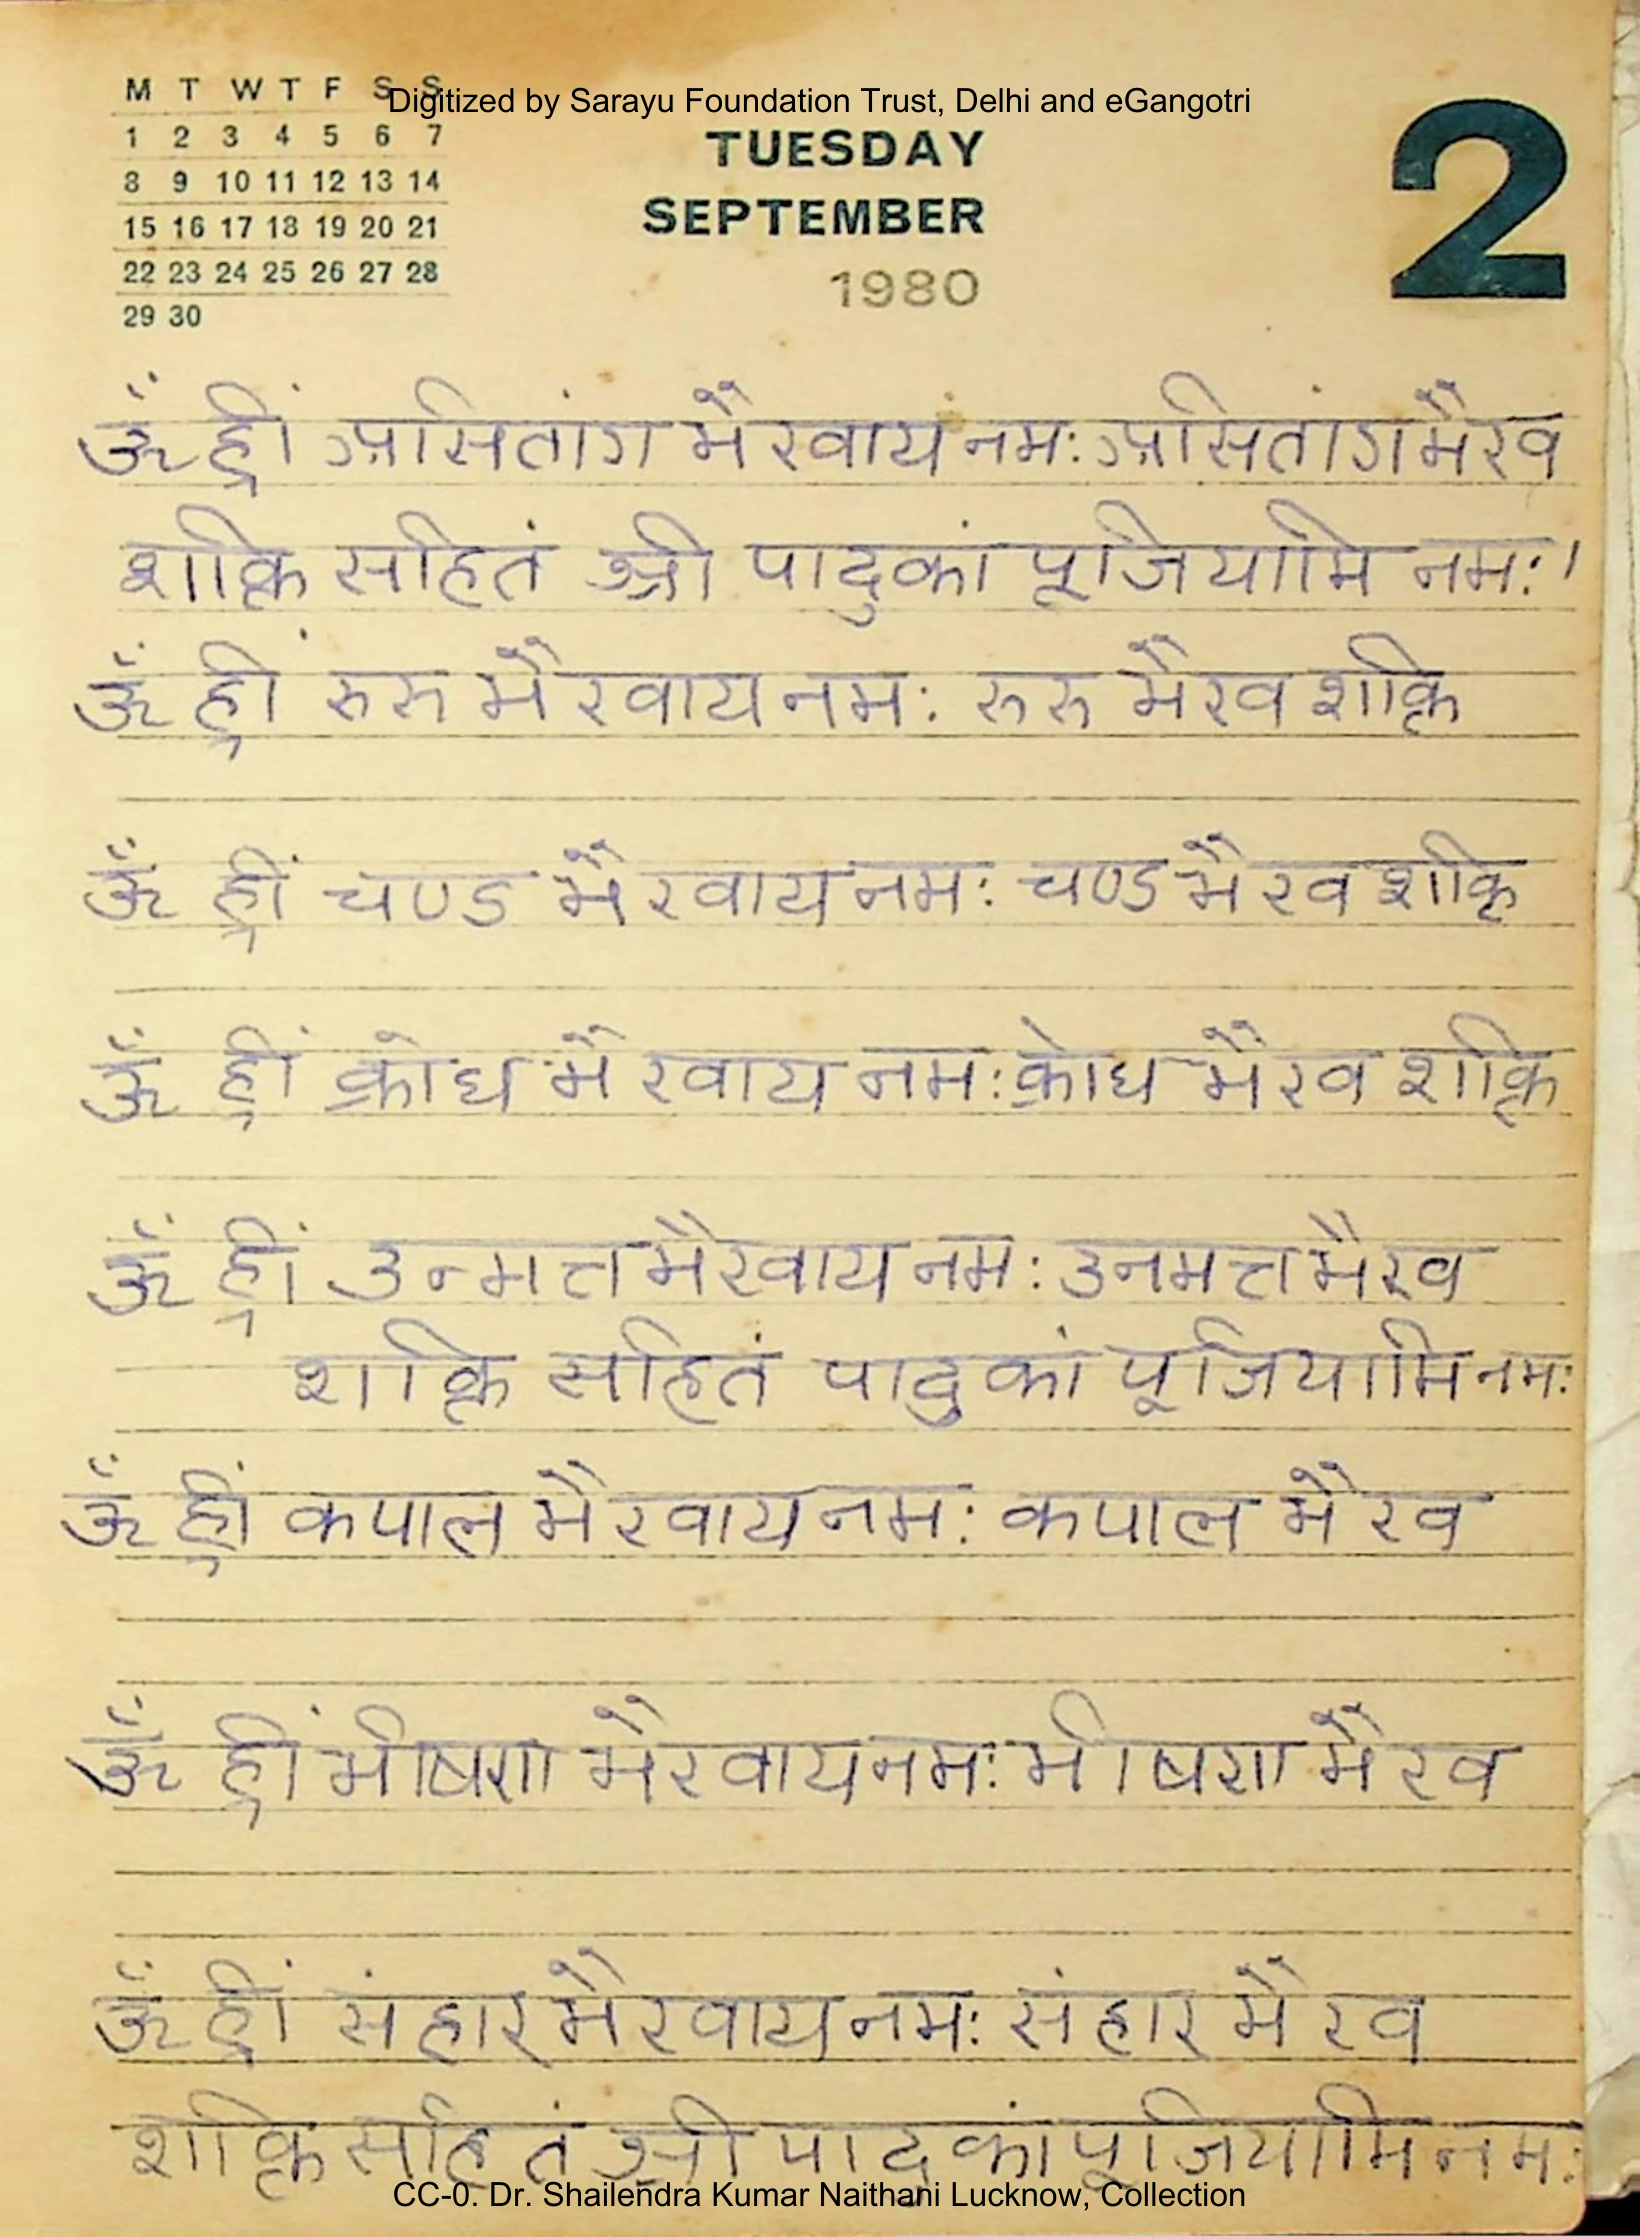 Digitized by Sarayu Foundation Trust, Delhi and eGangotri
M T W T F S S
1 2 3 4 5 6 7
8 9 10 11 12 13 14
15 16 17 18 19 20 21
22 23 24 25 26 27 28
29 30
TUESDAY
SEPTEMBER
1980
2
ॐ ह्रीं असितांग भैरवाय नमः असितांग भैरव
शक्ति सहितं श्री पादुकां पूजियामि नमः।
ॐ ह्रीं रुरु भैरवाय नमः रुरु भैरव शक्ति
ॐ ह्रीं चण्ड भैरवाय नमः चण्ड भैरव शक्ति
ॐ ह्रीं क्रोध भैरवाय नमः क्रोध भैरव शक्ति
ॐ ह्रीं उन्मत्त भैरवाय नमः उनमत्त भैरव
शक्ति सहितं पादुकां पूजियामि नमः
ॐ ह्रीं कपाल भैरवाय नमः कपाल भैरव
ॐ ह्रीं भीषण भैरवाय नमः भीषण भैरव
ॐ ह्रीं संहार भैरवाय नमः संहार भैरव
शक्ति सहितं श्री पादुकां पूजियामि नमः
CC-0. Dr. Shailendra Kumar Naithani Lucknow, Collection